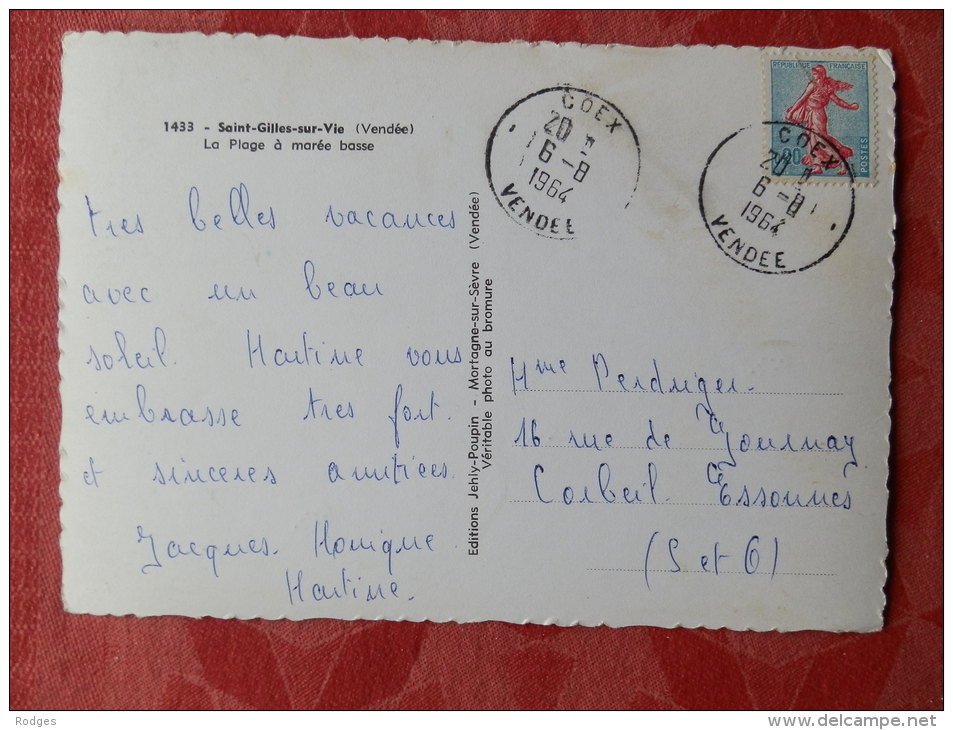 1433 - Saint-Gilles-sur-Vie (Vendée)
La Plage à marée basse
tres belles vacances
avec un beau
soleil. Martine vous
embrasse tres fort.
et sinceres amitiées.
Jacques. Monique
Martine.
Editions Jehly-Poupin - Mortagne-sur-Sèvre (Vendée)
Véritable photo au bromure
REPUBLIQUE FRANÇAISE
POSTES
COEX
20 H
6-8
1964
VENDEE
COEX
20 H
6-8
1964
VENDEE
Mme Perdriger.
16 rue de Gournay
Corbeil Essonnes
(S et O)
Rodges
delcampe.net